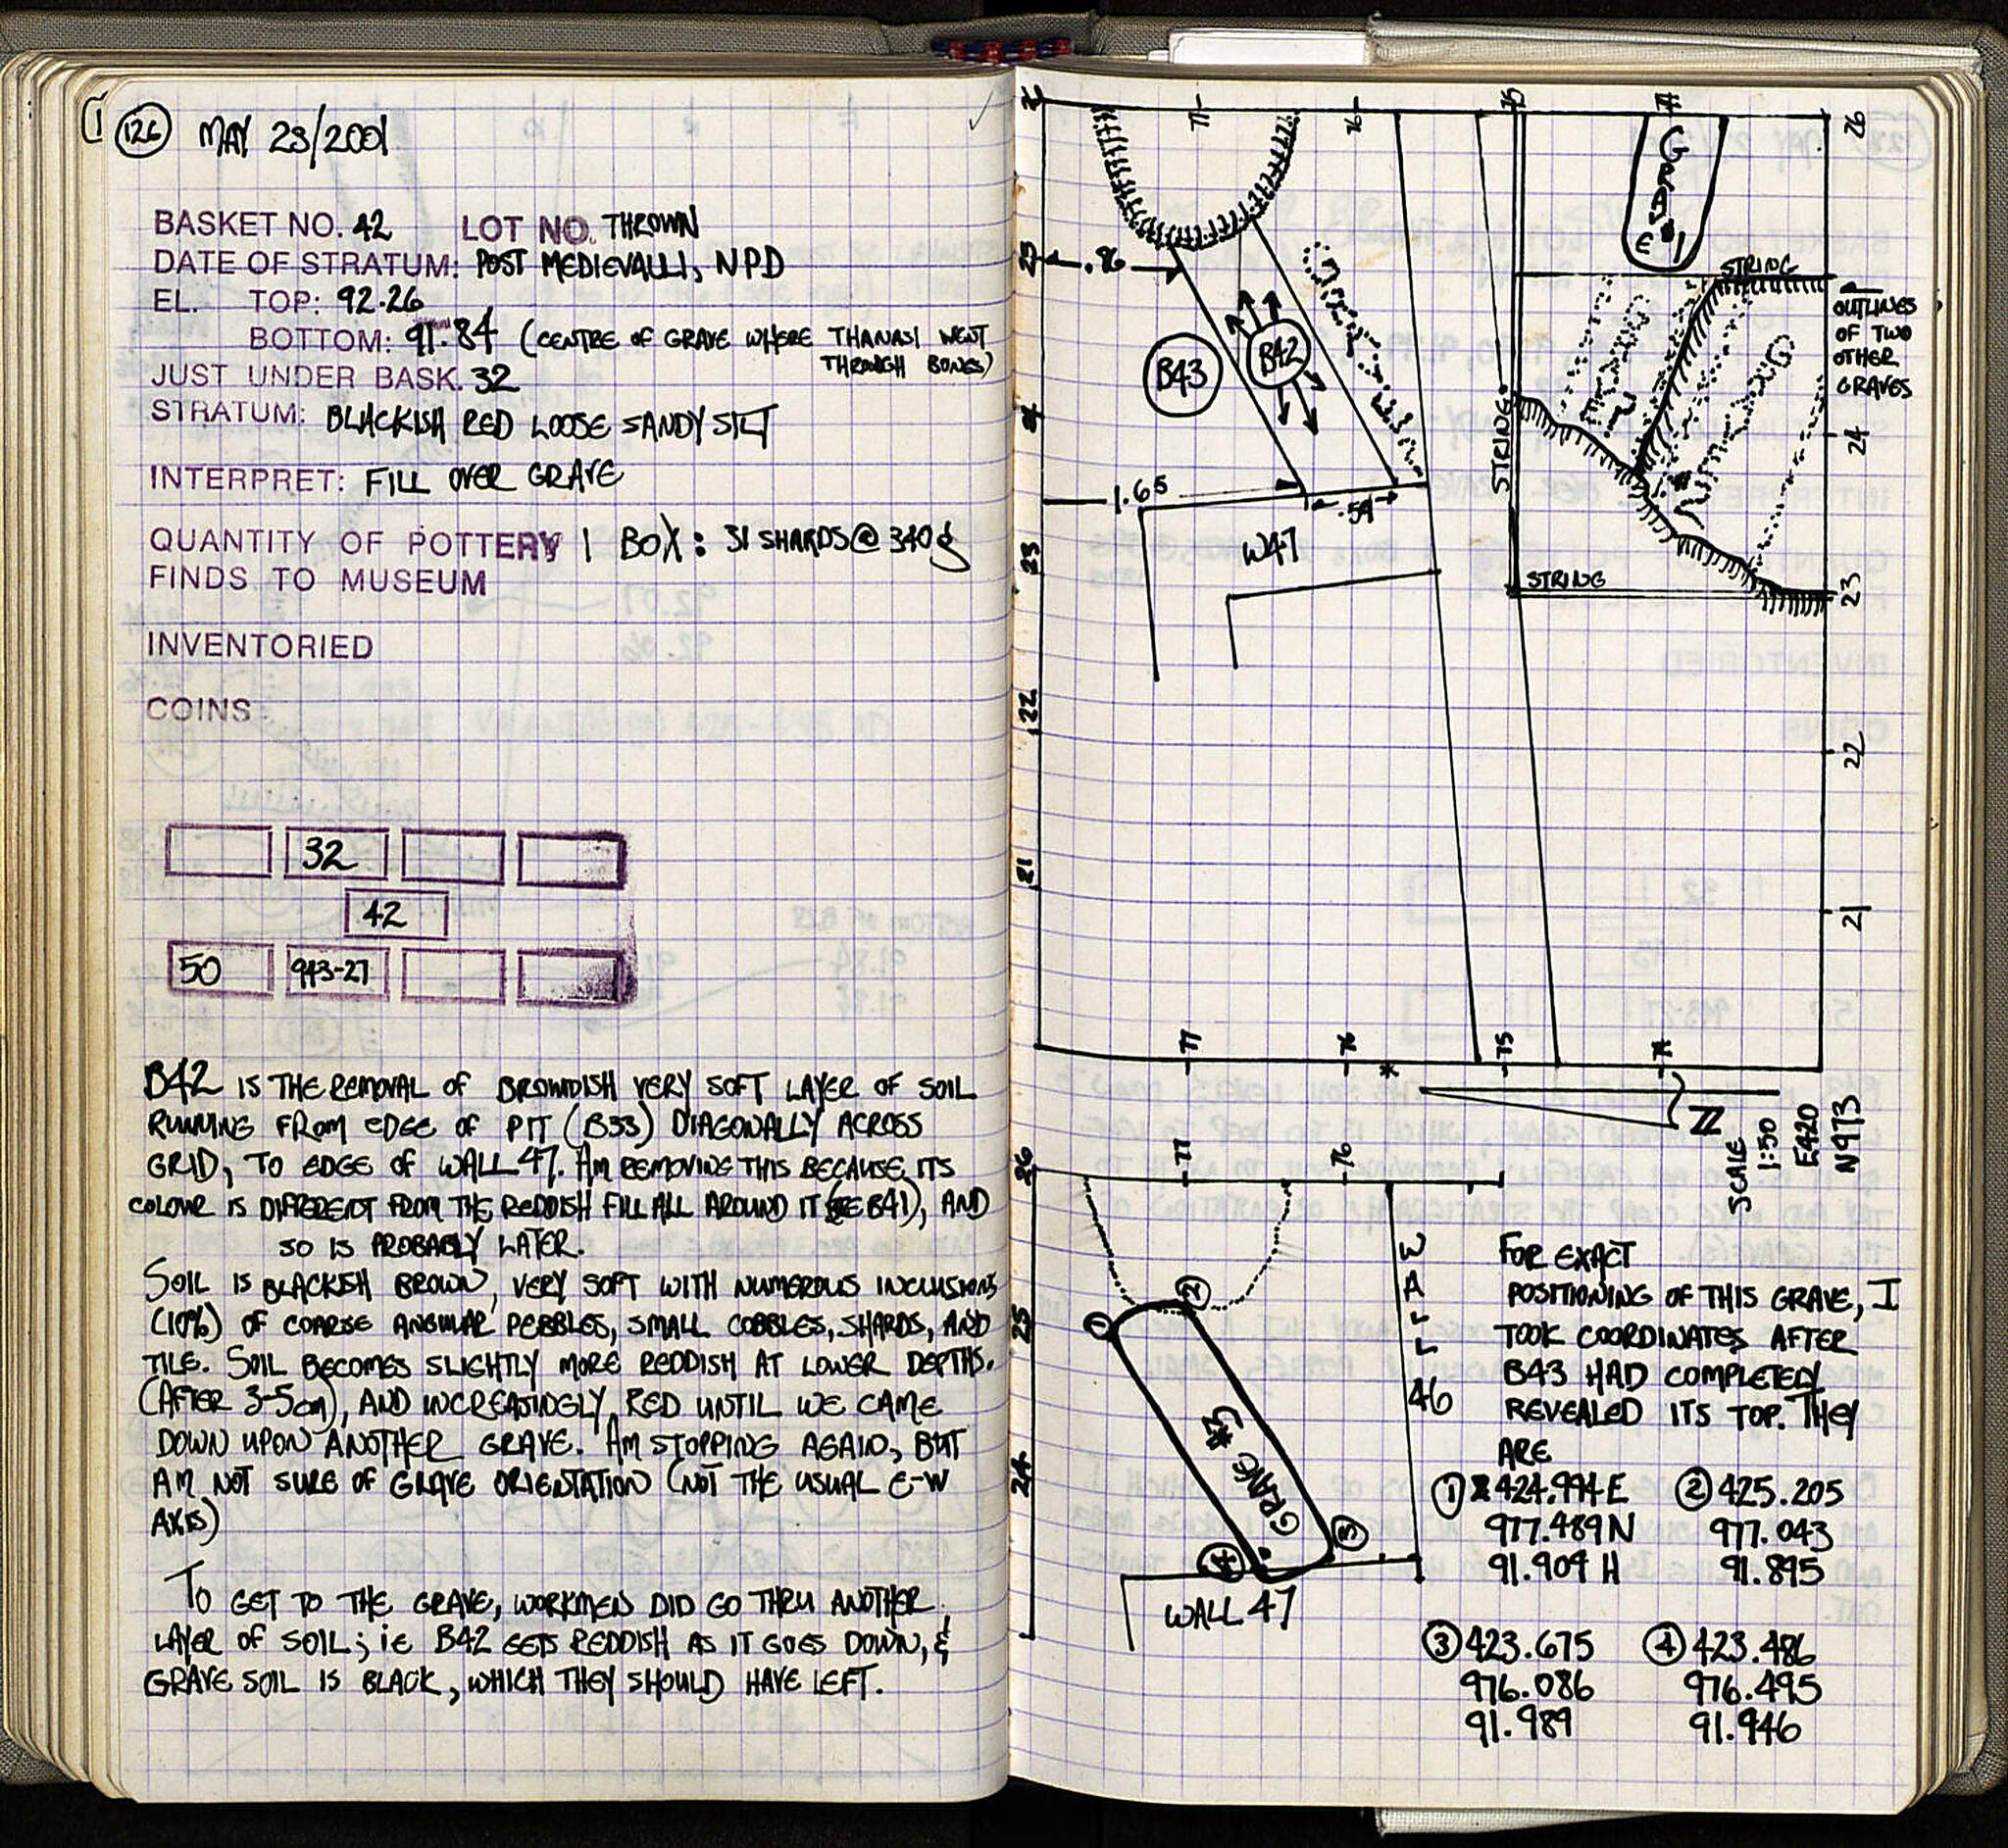 126 MAY 23/2001
BASKET NO. 42 LOT NO. THROWN
DATE OF STRATUM: POST MEDIEVALLI, NPD
EL. TOP: 92.26
BOTTOM: 91.84 (CENTRE OF GRAVE WHERE THANASI WENT
THROUGH BONES)
JUST UNDER BASK. 32
STRATUM: BLACKISH RED LOOSE SANDY SILT
INTERPRET: FILL OVER GRAVE
QUANTITY OF POTTERY 1 BOX: 31 SHARDS @ 340g
FINDS TO MUSEUM
INVENTORIED
COINS
32
42
50 943-27
B42 IS THE REMOVAL OF BROWNISH VERY SOFT LAYER OF SOIL
RUNNING FROM EDGE OF PIT (B33) DIAGONALLY ACROSS
GRID, TO EDGE OF WALL 47. AM REMOVING THIS BECAUSE ITS
COLOUR IS DIFFERENT FROM THE REDDISH FILL ALL AROUND IT (SEE B41), AND
SO IS PROBABLY LATER.
SOIL IS BLACKISH BROWN, VERY SOFT WITH NUMEROUS INCLUSIONS
(10%) OF COARSE ANGULAR PEBBLES, SMALL COBBLES, SHARDS, AND
TILE. SOIL BECOMES SLIGHTLY MORE REDDISH AT LOWER DEPTHS.
(AFTER 3-5cm), AND INCREASINGLY RED UNTIL WE CAME
DOWN UPON ANOTHER GRAVE. AM STOPPING AGAIN, BUT
AM NOT SURE OF GRAVE ORIENTATION (NOT THE USUAL E-W
AXIS)
TO GET TO THE GRAVE, WORKMEN DID GO THRU ANOTHER
LAYER OF SOIL; ie B42 GETS REDDISH AS IT GOES DOWN, &
GRAVE SOIL IS BLACK, WHICH THEY SHOULD HAVE LEFT.
77 76 75 74
26
25
.86
B43
B42
GRAVE #1
STRING
OUTLINES
OF TWO
OTHER
GRAVES
STRING
24
1.65
.59
W47
23
STRING
23
122
22
21
21
77 76 75 74
N
SCALE
1:50
E420
N973
26
77 76
25
24
1 2
GRAVE #3
3
4
WALL 46
WALL 47
FOR EXACT
POSITIONING OF THIS GRAVE, I
TOOK COORDINATES AFTER
B43 HAD COMPLETELY
REVEALED ITS TOP. THEY
ARE
1 424.994E 2 425.205
977.489N 977.043
91.909 H 91.895
3 423.675 4 423.486
976.086 976.495
91.989 91.946